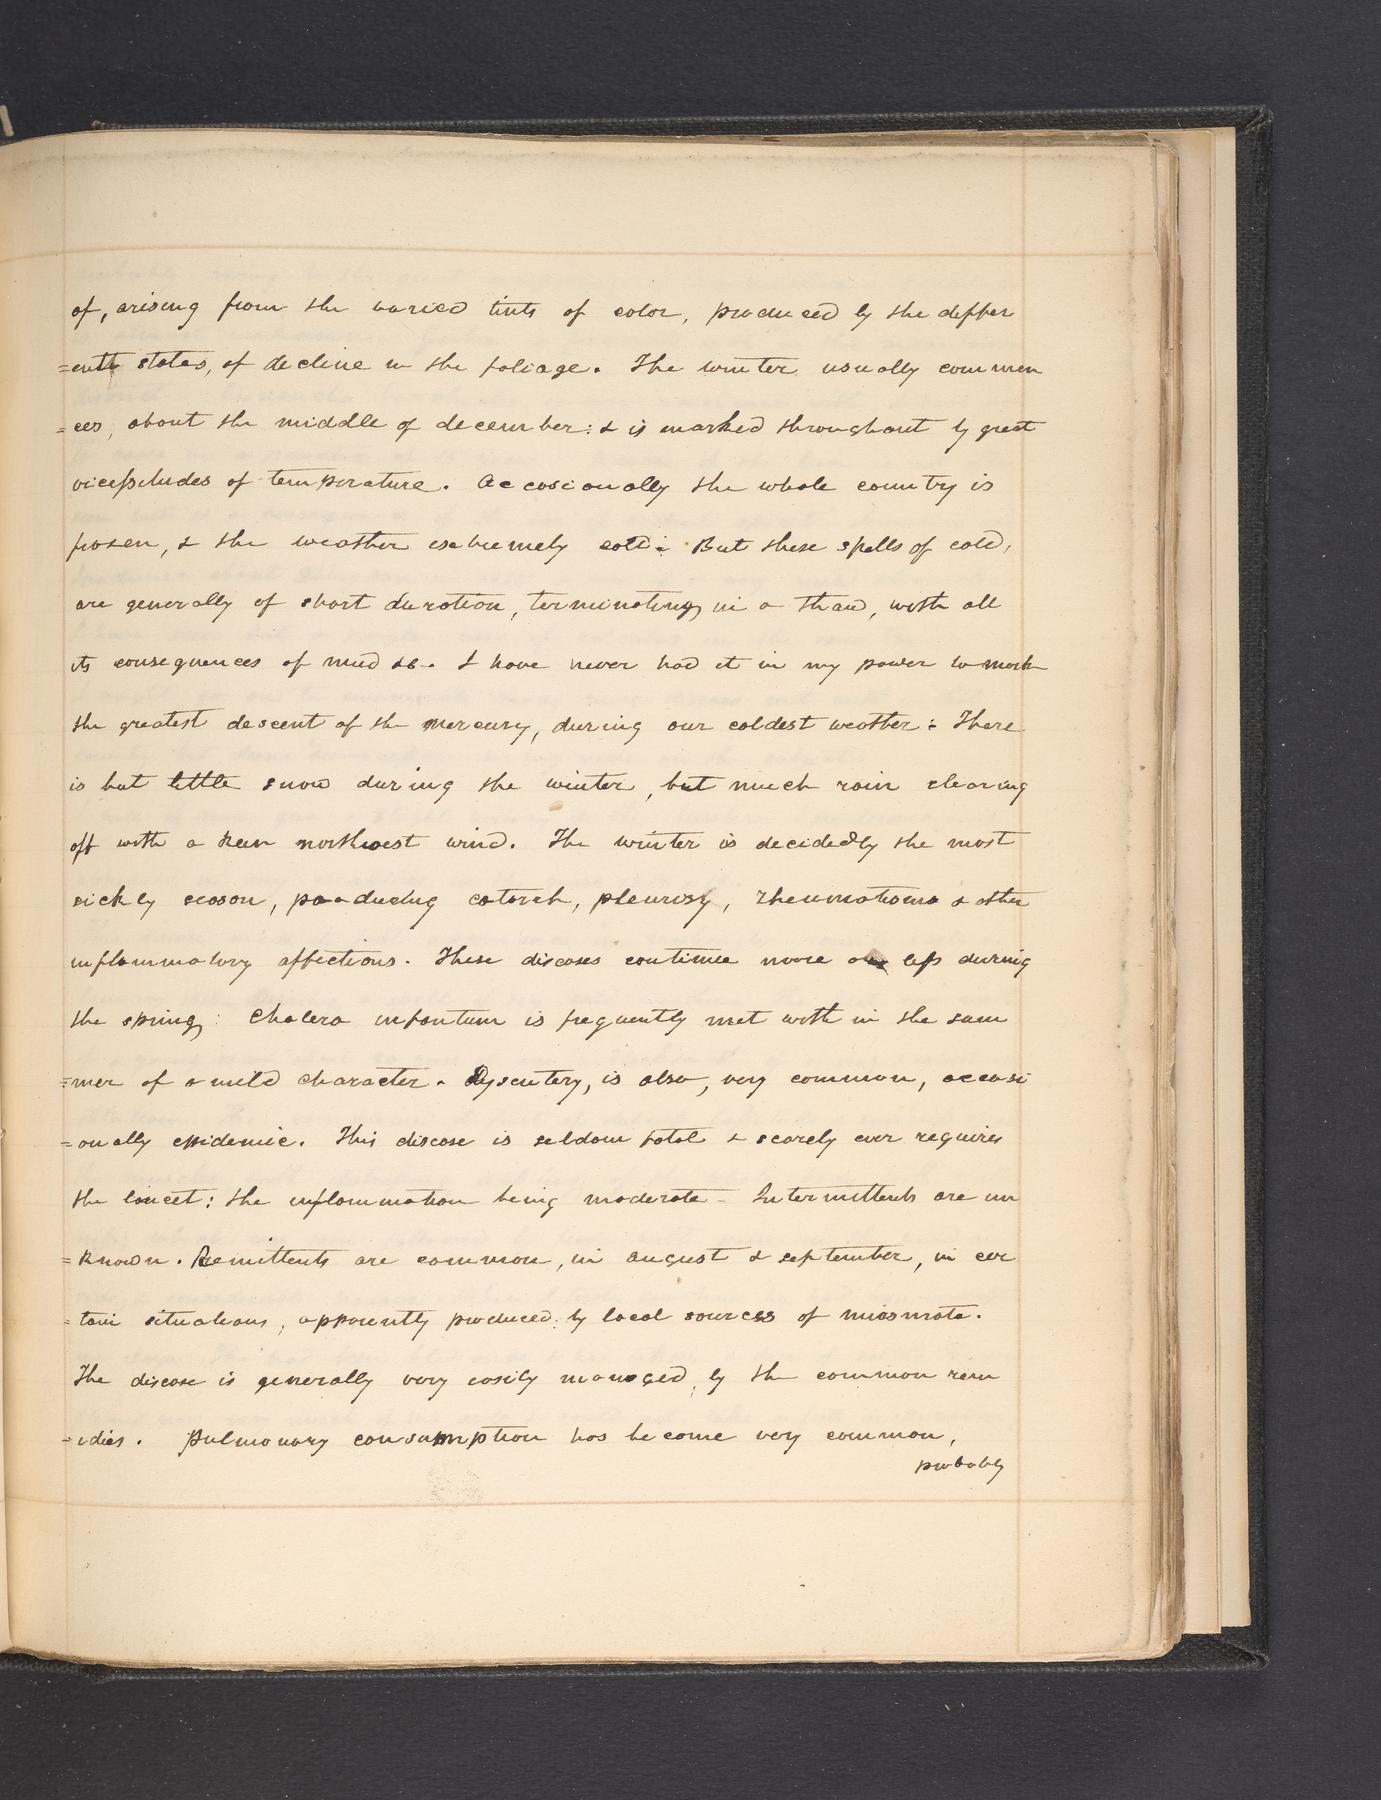 of, arising from the varied tints of color, produced by the differ
=entt states, of decline in the foliage. The winter usually commen
=ces, about the middle of december: & is marked throughout by great
vicessitudes of temperature. Accosionally the whole country is
frozen, & the weather exstremely cold: But these spells of cold,
are generally of short duration, terminating in a thaw, with all
its consequences of mud &c. I have never had it in my power to mark
the greatest descent of the mercury, during our coldest weather: There
is but little snow during the winter, but much rain clearing
off with a keen northwest wind. The winter is decidedly the most
sickly season, producing catarrh, pleurisy, rheumatisms & other
inflammatory affections. These diseases continue more or less during
the spring: Cholera infantum is frequently met with in the sum
=mer of a mild character. Dysentery, is also, very common, occasi
=onally epidemic. This disease is seldom fatal & scarely ever requires
the lancet: the inflammation being moderate - Intermittents are un
=known. Remittents are common, in august & september, in cer
=tain situations, apparently produced by local sources of miasmata.
The disease is generally very easily managed, by the common rem
=idies. Pulmonary consumption has become very common,
probably